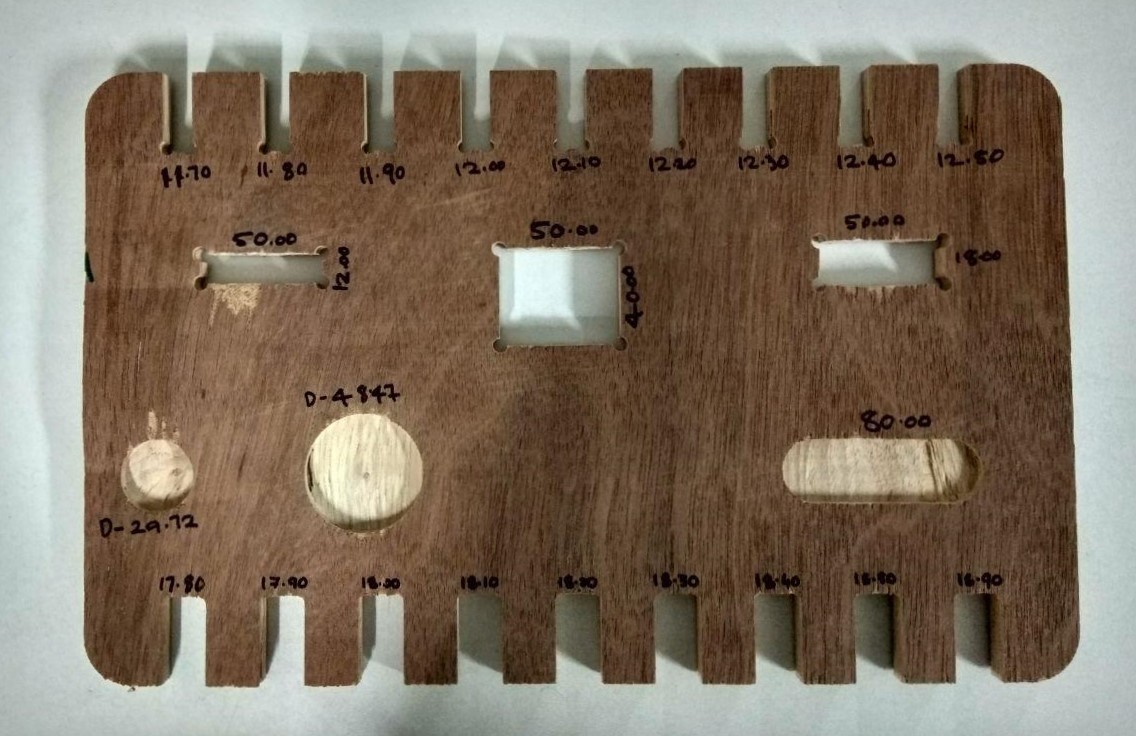 11.70 11.80 11.90 12.00 12.10 12.20 12.30 12.40 12.50
50.00 50.00 50.00
12.00 40.00 18.00
D-4847
80.00
D-29.72
17.80 17.90 18.00 18.10 18.20 18.30 18.40 18.80 18.90